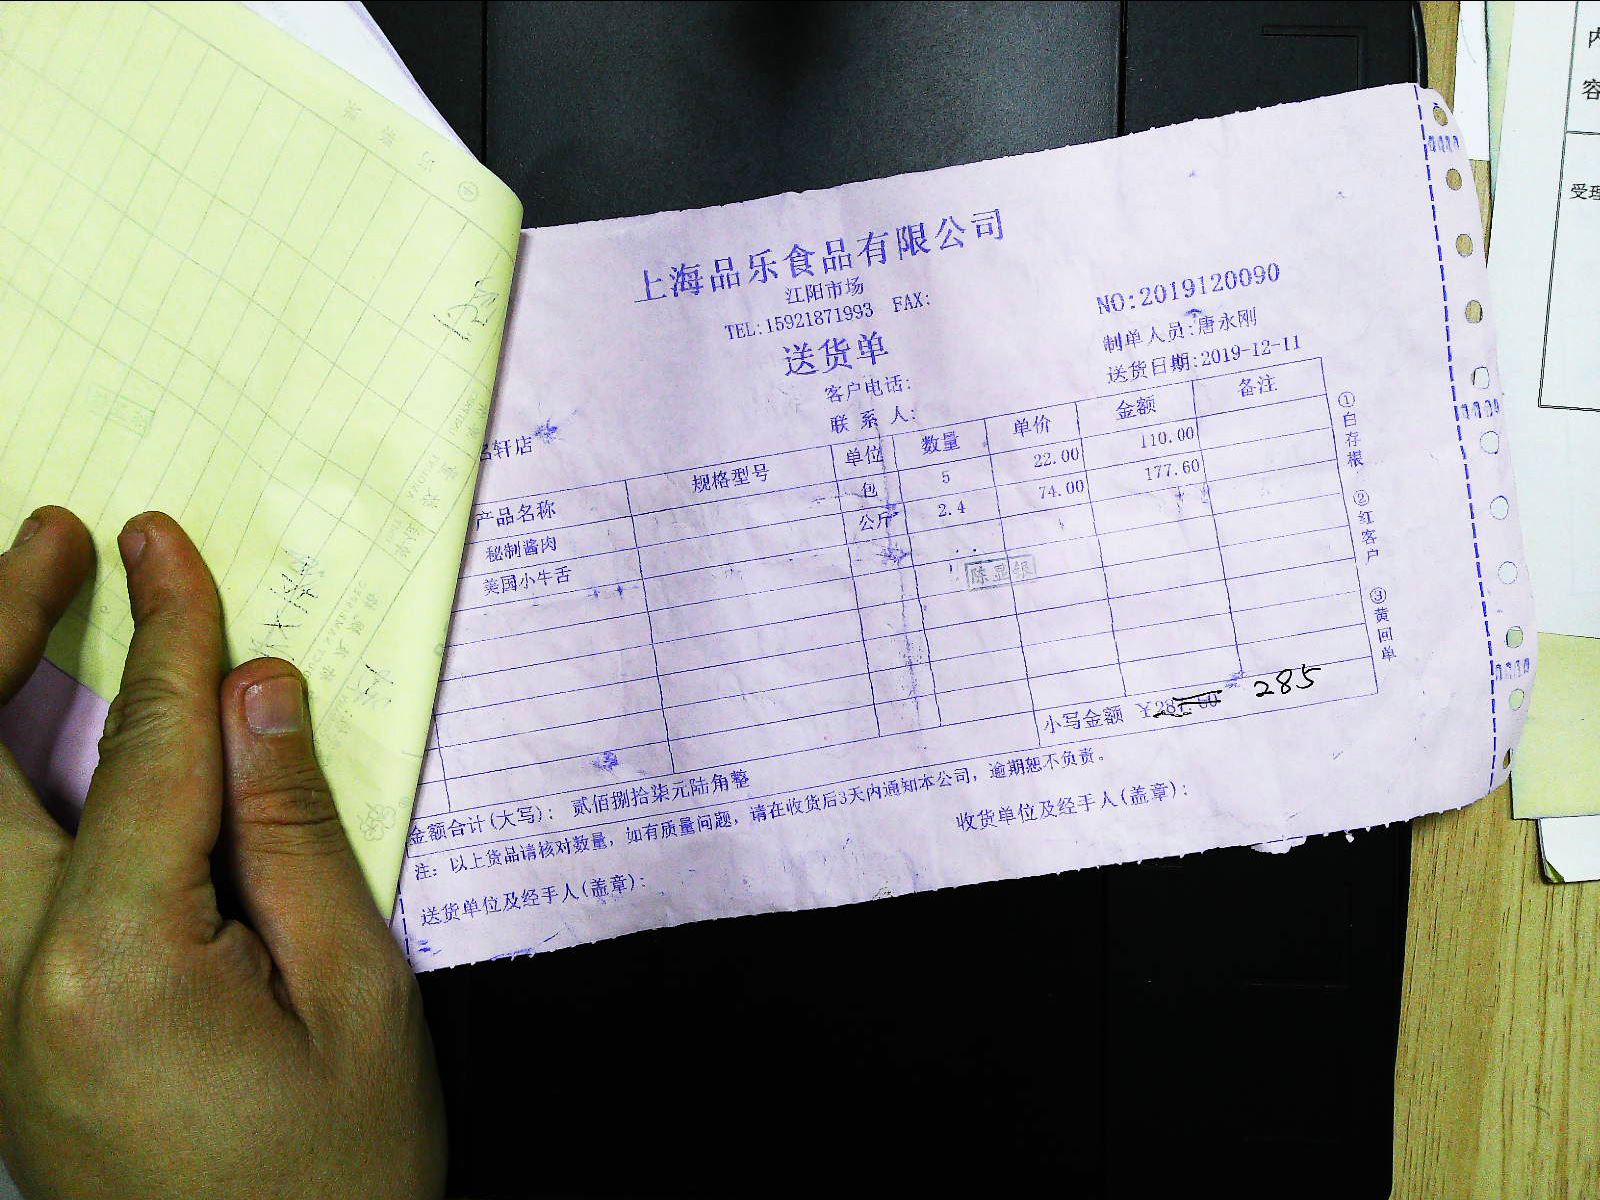 上海品乐食品有限公司
江阳市场
TEL:15921871993 FAX:
NO:2019120090
送货单
制单人员:唐永刚
客户电话:
送货日期:2019-12-11
轩店
联 系 人:
产品名称 规格型号 单位 数量 单价 金额 备注
秘制酱肉 包 5 22.00 110.00
美国小牛舌 公斤 2.4 74.00 177.60
陈显银
小写金额 ¥287.60 285
金额合计(大写): 贰佰捌拾柒元陆角整
注: 以上货品请核对数量, 如有质量问题, 请在收货后3天内通知本公司, 逾期恕不负责。
送货单位及经手人(盖章):
收货单位及经手人(盖章):
①白存根 ②红客户 ③黄回单
内
容
受理